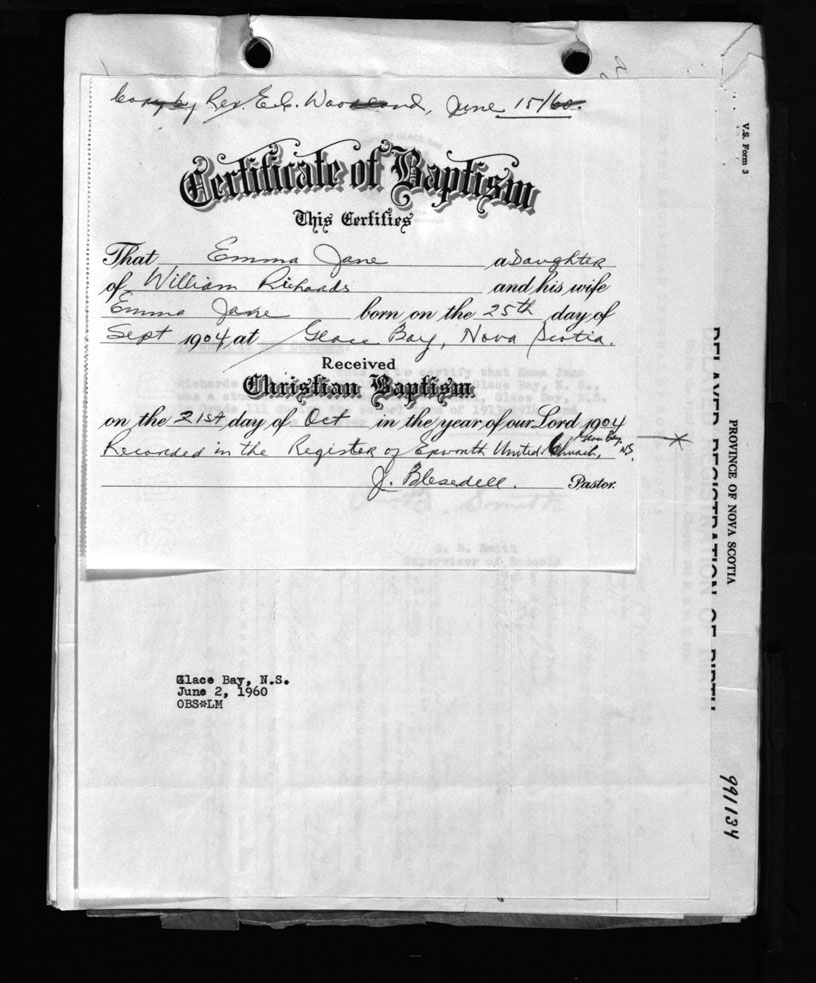 Copy by Rev. E.C. Woodland, June 15/60.
Certificate of Baptism
This Certifies
That Emma Jane a Daughter
of William Richards and his wife
Emma Jane born on the 25th day of
Sept 1904 at Glace Bay, Nova Scotia.
Received
to certify that Emma Jane
Richards Glace Bay, N. S.,
was a Glace Bay, N.S.
Christian Baptism
on the 21st day of Oct in the year of our Lord 1904
Recorded in the Register of Epworth United Church, Glace Bay, N.S.
J. Blesedell. Pastor.
Smith
Supervisor of Schools
Glace Bay, N.S.
June 2, 1960
OBS*LM
V.S. Form 3
PROVINCE OF NOVA SCOTIA
DELAYED REGISTRATION OF BIRTH
991134